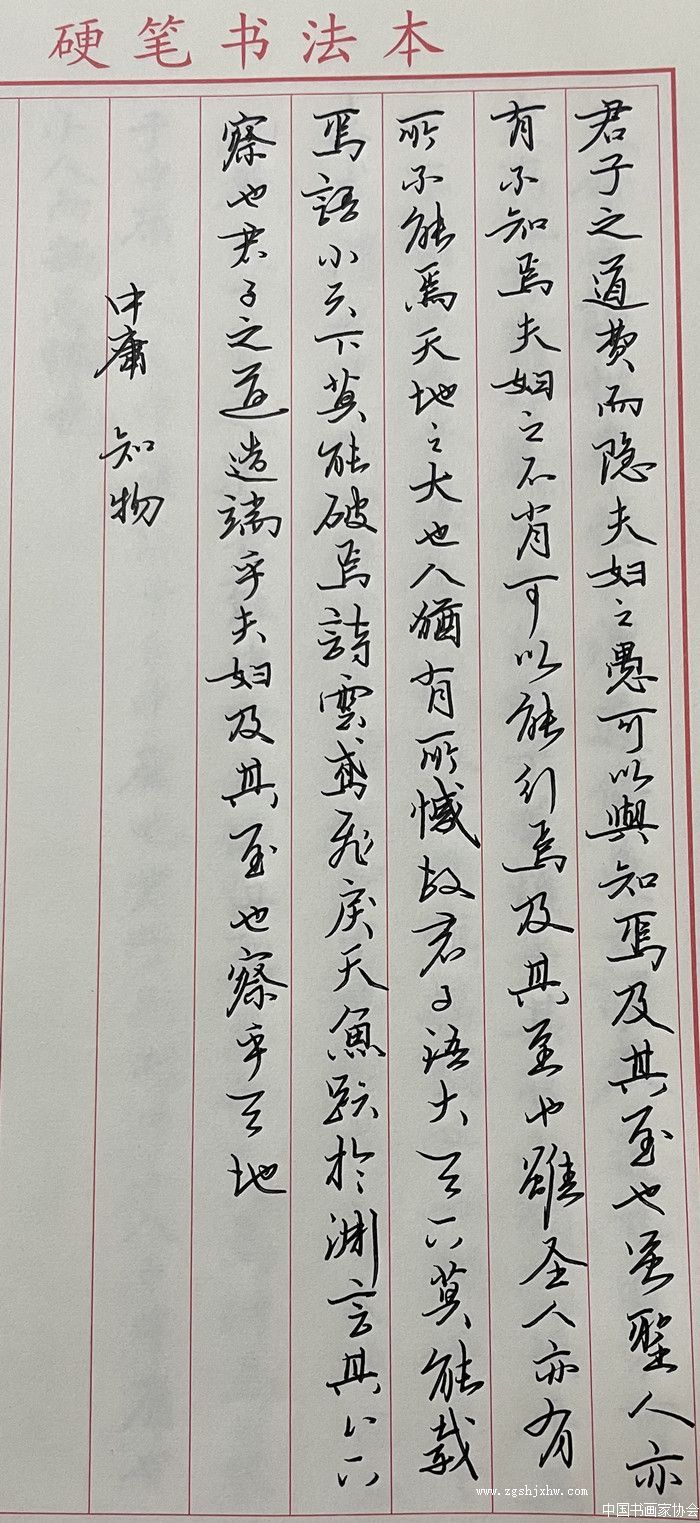 硬笔书法本
君子之道费而隐夫妇之愚可以與知焉及其至也虽聖人亦
有不知焉夫妇之不肖可以能行焉及其至也雖圣人亦有
所不能焉天地之大也人猶有所憾故君子语大天下莫能载
焉語小天下莫能破焉詩雲鸢飛戾天魚跃於渊言其上下
察也君子之道造端乎夫妇及其至也察乎天地
中庸 知物
www.zgshjxhw.com
中国书画家协会